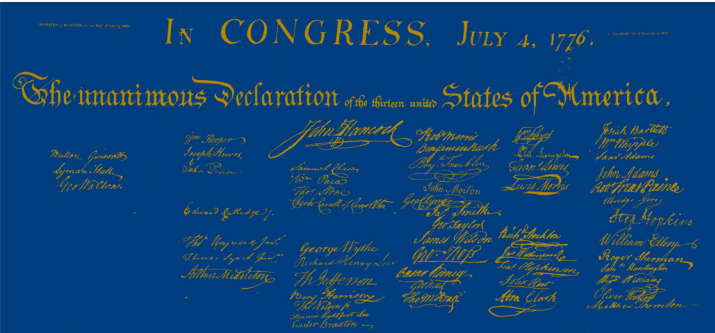 IN CONGRESS, JULY 4, 1776.
The unanimous Declaration of the thirteen united States of America,
Button Gwinnett
Lyman Hall
Geo Walton.
Wm Hooper
Joseph Hewes
John Penn
Edward Rutledge
Thos Heyward Junr.
Thomas Lynch Junr.
Arthur Middleton
John Hancock
Samuel Chase
Wm Paca
Thos Stone
Charles Carroll of Carrollton
George Wythe
Richard Henry Lee
Th Jefferson
Benj Harrison
Thos Nelson jr
Francis Lightfoot Lee
Carter Braxton
Robt Morris
Benjamin Rush
Benj Franklin
John Morton
Geo Clymer
Jas Smith
Geo Taylor
James Wilson
Geo Ross
Caesar Rodney
Geo Read
Tho M:Kean
Phil. Livingston
Lewis Morris
Richd Stockton
Jno Witherspoon
Fras Hopkinson
John Hart
Abra Clark
Josiah Bartlett
Wm Whipple
Saml Adams
John Adams
Robt Treat Paine
Elbridge Gerry
Step. Hopkins
William Ellery
Roger Sherman
Saml Huntington
Wm Williams
Oliver Wolcott
Matthew Thornton